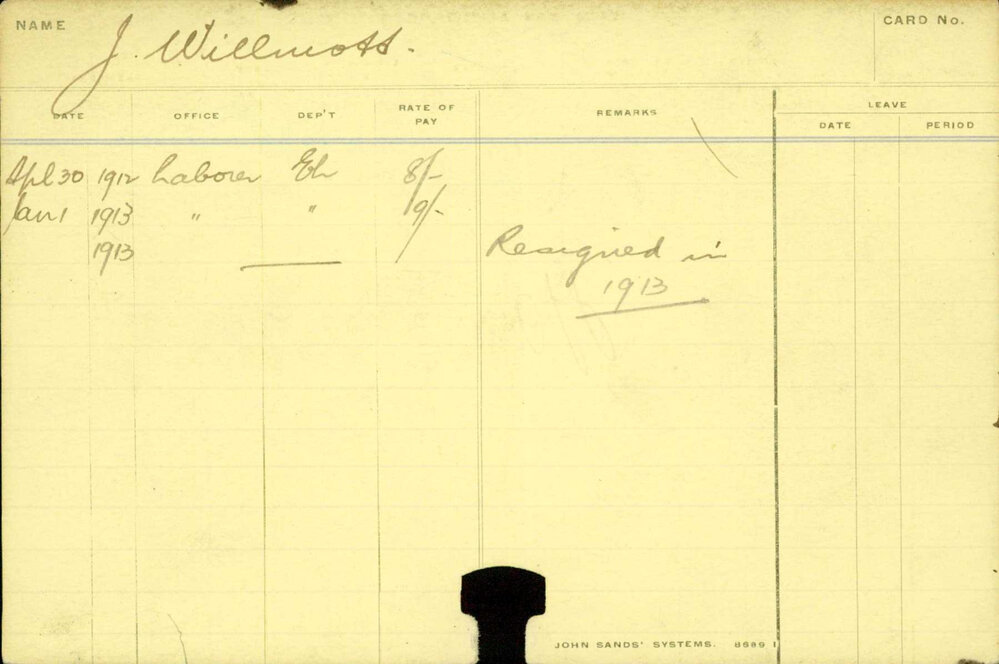 NAME J. Willmott. CARD No.
DATE OFFICE DEP'T RATE OF PAY REMARKS LEAVE
DATE PERIOD
Apl 30 1912 Laborer 8/-
Jan 1 1913 " " 9/-
1913
Resigned in
1913
JOHN SANDS' SYSTEMS.